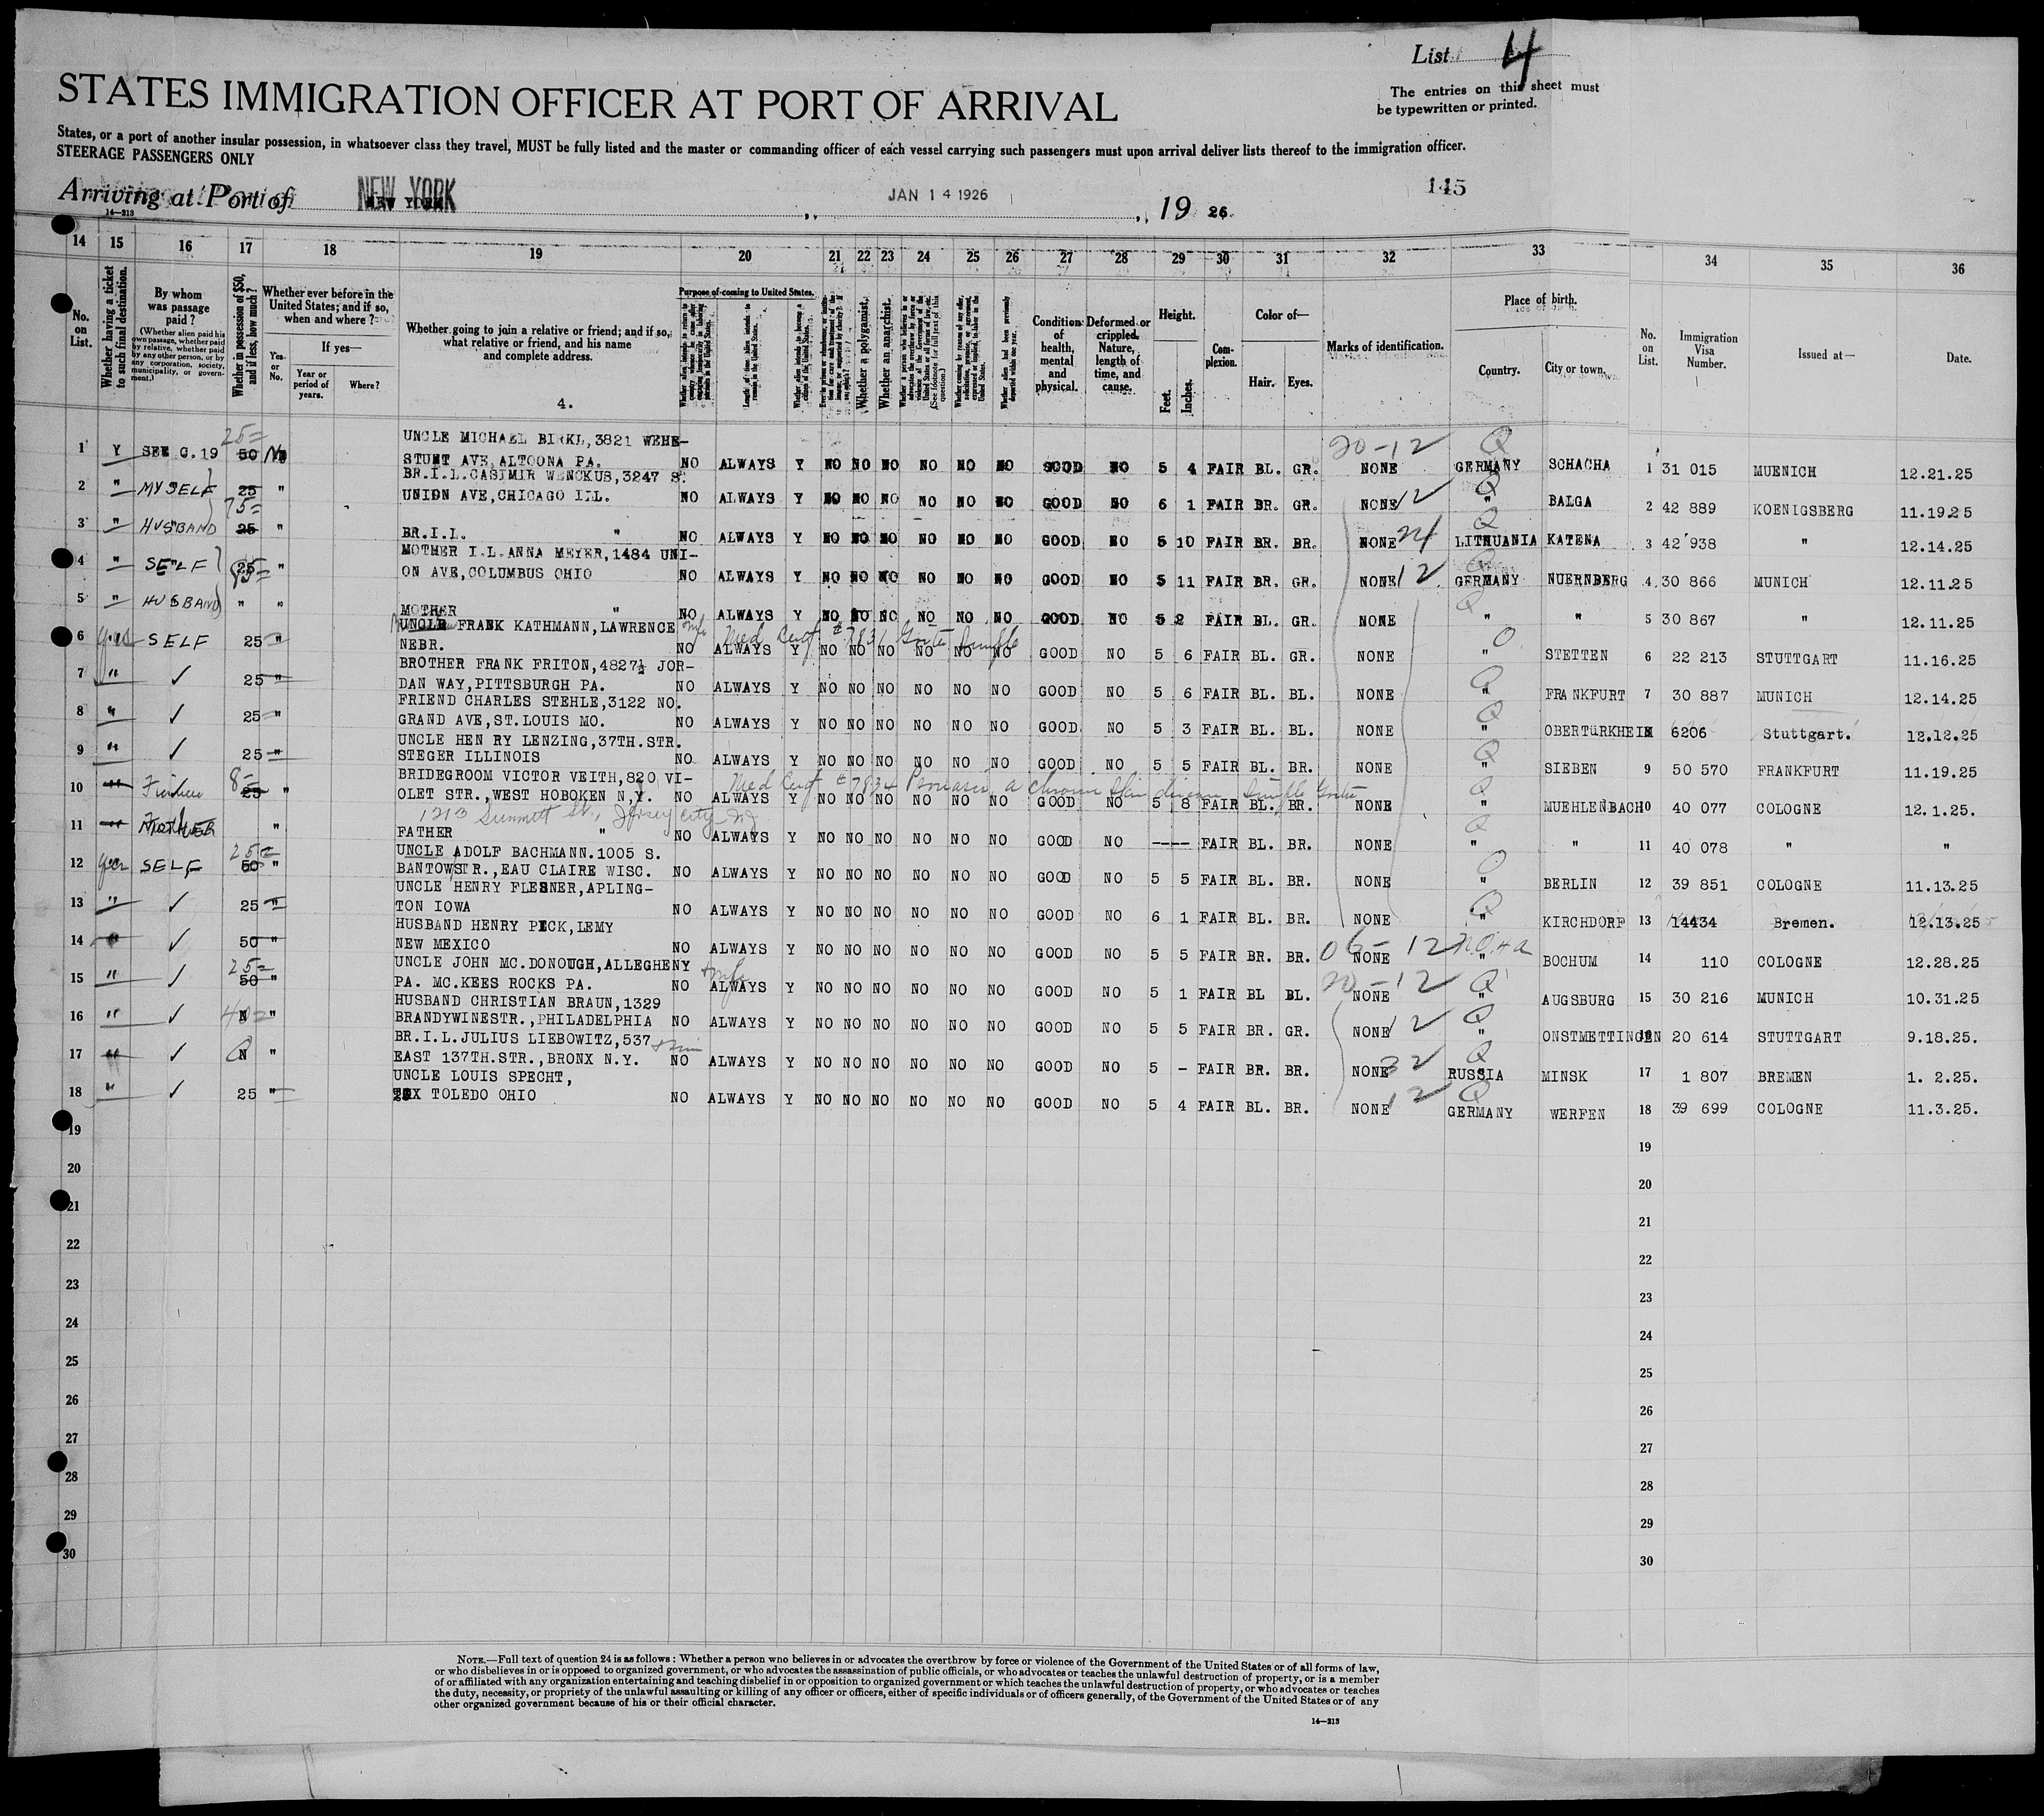 List 4
The entries on this sheet must
be typewritten or printed.
STATES IMMIGRATION OFFICER AT PORT OF ARRIVAL
States, or a port of another insular possession, in whatsoever class they travel, MUST be fully listed and the master or commanding officer of each vessel carrying such passengers must upon arrival deliver lists thereof to the immigration officer.
STEERAGE PASSENGERS ONLY
145
Arriving at Port of NEW YORK JAN 14 1926, 19 26
14—213
14 15 16 17 18 19 20 21 22 23 24 25 26 27 28 29 30 31 32 33 34 35 36
No. on List.
Whether having a ticket to such final destination.
By whom was passage paid?
(Whether alien paid his own passage, whether paid by relative, whether paid by any other person, or by any corporation, society, municipality, or government.)
Whether in possession of $50, and if less, how much?
Whether ever before in the United States; and if so, when and where?
Yes or No.
If yes—
Year or period of years.
Where?
Whether going to join a relative or friend; and if so, what relative or friend, and his name and complete address.
4.
Purpose of coming to United States.
Length of time alien intends to remain in the United States.
Whether a polygamist.
Whether an anarchist.
Condition of health, mental and physical.
Deformed or crippled. Nature, length of time, and cause.
Height.
Feet. Inches.
Complexion.
Color of—
Hair. Eyes.
Marks of identification.
Place of birth.
Country. City or town.
No. on List.
Immigration Visa Number.
Issued at—
Date.
25= 20-12 Q
UNCLE MICHAEL BIRKL, 3821 WEHE-
1 Y SEE G.19 50 No STUNT AVE, ALTOONA PA. NO ALWAYS Y NO NO NO NO NO NO GOOD NO 5 4 FAIR BL. GR. NONE GERMANY SCHACHA 1 31 015 MUENICH 12.21.25
BR.I.L. CASIMIR WENCKUS, 3247 S.
2 " MYSELF 25 " UNION AVE, CHICAGO ILL. NO ALWAYS Y NO NO NO NO NO NO GOOD NO 6 1 FAIR BR. GR. NONE 12 Q " BALGA 2 42 889 KOENIGSBERG 11.19.25
75=
3 " HUSBAND 25 " BR.I.L. " NO ALWAYS Y NO NO NO NO NO NO GOOD NO 5 10 FAIR BR. BR. NONE 24 Q LITHUANIA KATENA 3 42 938 " 12.14.25
MOTHER I.L. ANNA MEYER, 1484 UNI-
4 " SELF 25 " ON AVE, COLUMBUS OHIO NO ALWAYS Y NO NO NO NO NO NO GOOD NO 5 11 FAIR BR. GR. NONE 12 GERMANY NUERNBERG 4 30 866 MUNICH 12.11.25
5 " HUSBAND " " MOTHER " NO ALWAYS Y NO NO NO NO NO NO GOOD NO 5 2 FAIR BL. GR. NONE Q " " 5 30 867 " 12.11.25
UNCLE FRANK KATHMANN, LAWRENCE Med Cert #7831 Goitre Simple
6 yes SELF 25 " NEBR. NO ALWAYS Y NO NO NO NO NO NO GOOD NO 5 6 FAIR BL. GR. NONE Q " STETTEN 6 22 213 STUTTGART 11.16.25
BROTHER FRANK FRITON, 4827½ JOR-
7 " ✓ 25 " DAN WAY, PITTSBURGH PA. NO ALWAYS Y NO NO NO NO NO NO GOOD NO 5 6 FAIR BL. BL. NONE Q " FRANKFURT 7 30 887 MUNICH 12.14.25
FRIEND CHARLES STEHLE, 3122 NO.
8 " ✓ 25 " GRAND AVE, ST. LOUIS MO. NO ALWAYS Y NO NO NO NO NO NO GOOD NO 5 3 FAIR BL. BL. NONE Q " OBERTÜRKHEIM 6206 Stuttgart. 12.12.25
UNCLE HENRY LENZING, 37TH. STR.
9 " ✓ 25 " STEGER ILLINOIS NO ALWAYS Y NO NO NO NO NO NO GOOD NO 5 5 FAIR BL. BR. NONE Q " SIEBEN 9 50 570 FRANKFURT 11.19.25
BRIDEGROOM VICTOR VEITH, 820 VI- Med Cert #7834 Psoriasis, a chronic skin disease Simple Goitre
10 " 8= 25 " OLET STR., WEST HOBOKEN N.Y. NO ALWAYS Y NO NO NO NO NO NO GOOD NO 5 8 FAIR BL. BR. NONE Q " MUEHLENBACH 10 40 077 COLOGNE 12.1.25.
1213 Summett St., Jersey City NJ
11 " MOTHER " FATHER " NO ALWAYS Y NO NO NO NO NO NO GOOD NO ---- FAIR BL. BR. NONE Q " " 11 40 078 " "
25= UNCLE ADOLF BACHMANN. 1005 S.
12 yes SELF 50 " BANTOWSTR., EAU CLAIRE WISC. NO ALWAYS Y NO NO NO NO NO NO GOOD NO 5 5 FAIR BL. BR. NONE Q " BERLIN 12 39 851 COLOGNE 11.13.25
UNCLE HENRY FLESNER, APLING-
13 " ✓ 25 " TON IOWA NO ALWAYS Y NO NO NO NO NO NO GOOD NO 6 1 FAIR BL. BR. NONE Q " KIRCHDORF 13 14434 Bremen. 12.13.25
HUSBAND HENRY PECK, LEMY
14 " ✓ 50 " NEW MEXICO NO ALWAYS Y NO NO NO NO NO NO GOOD NO 5 5 FAIR BR. BR. NONE 12 " BOCHUM 14 110 COLOGNE 12.28.25
25= UNCLE JOHN MC.DONOUGH, ALLEGHENY
15 " ✓ 50 " PA. MC.KEES ROCKS PA. NO ALWAYS Y NO NO NO NO NO NO GOOD NO 5 1 FAIR BL BL. 20-12 NONE Q " AUGSBURG 15 30 216 MUNICH 10.31.25
HUSBAND CHRISTIAN BRAUN, 1329
16 " ✓ N " BRANDYWINESTR., PHILADELPHIA NO ALWAYS Y NO NO NO NO NO NO GOOD NO 5 5 FAIR BR. GR. NONE 12 Q " ONSTMETTINGEN 16 20 614 STUTTGART 9.18.25.
BR.I.L. JULIUS LIEBOWITZ, 537
17 " ✓ N " EAST 137TH. STR., BRONX N.Y. NO ALWAYS Y NO NO NO NO NO NO GOOD NO 5 - FAIR BR. BR. NONE 32 Q RUSSIA MINSK 17 1 807 BREMEN 1. 2.25.
UNCLE LOUIS SPECHT,
18 " ✓ 25 " TOLEDO OHIO NO ALWAYS Y NO NO NO NO NO NO GOOD NO 5 4 FAIR BL. BR. NONE 12 Q GERMANY WERFEN 18 39 699 COLOGNE 11.3.25.
19 19
20 20
21 21
22 22
23 23
24 24
25 25
26 26
27 27
28 28
29 29
30 30
NOTE.—Full text of question 24 is as follows: Whether a person who believes in or advocates the overthrow by force or violence of the Government of the United States or of all forms of law,
or who disbelieves in or is opposed to organized government, or who advocates the assassination of public officials, or who advocates or teaches the unlawful destruction of property, or is a member
of or affiliated with any organization entertaining and teaching disbelief in or opposition to organized government or which teaches the unlawful destruction of property, or who advocates or teaches
the duty, necessity, or propriety of the unlawful assaulting or killing of any officer or officers, either of specific individuals or of officers generally, of the Government of the United States or of any
other organized government because of his or their official character.
14—213